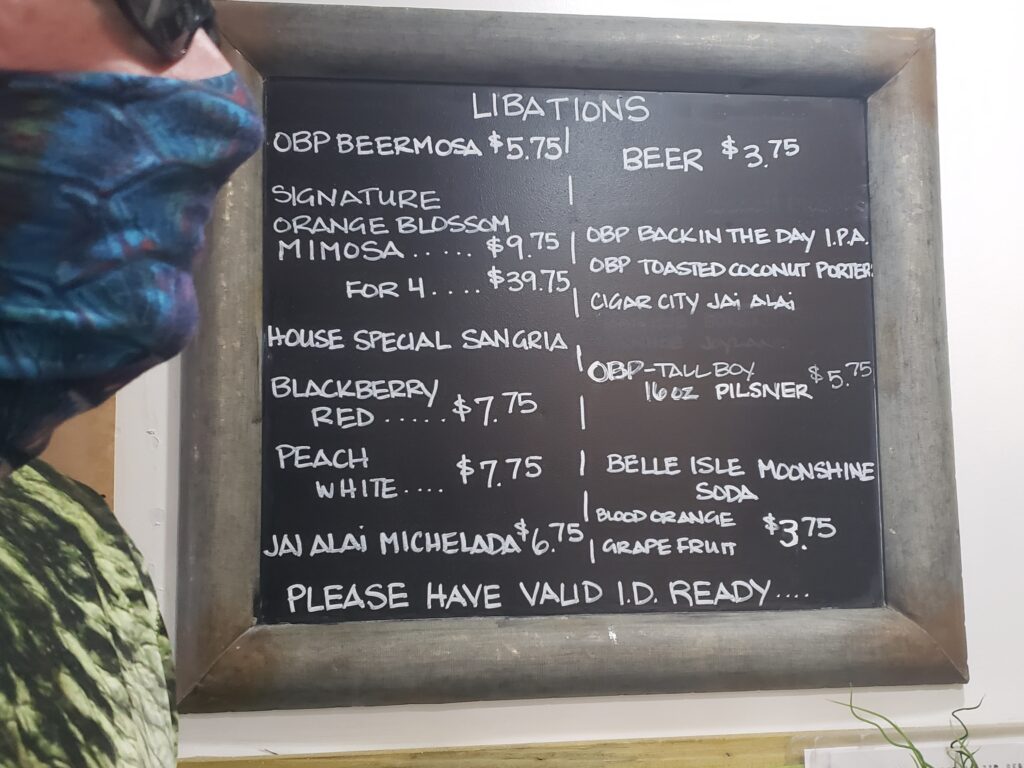 LIBATIONS
OBP BEERMOSA $5.75
SIGNATURE
ORANGE BLOSSOM
MIMOSA ..... $9.75
FOR 4 .... $39.75
HOUSE SPECIAL SANGRIA
BLACKBERRY
RED ..... $7.75
PEACH
WHITE .... $7.75
JAI ALAI MICHELADA $6.75
BEER $3.75
OBP BACK IN THE DAY I.P.A.
OBP TOASTED COCONUT PORTER
CIGAR CITY JAI ALAI
OBP-TALL BOY
16 OZ PILSNER $5.75
BELLE ISLE MOONSHINE
SODA
BLOOD ORANGE
GRAPEFRUIT $3.75
PLEASE HAVE VALID I.D. READY....